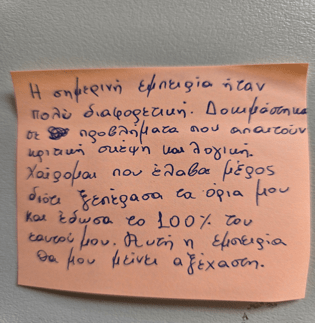 Η σημερινή εμπειρία ήταν
πολύ διαφορετική. Δοκιμάστηκα
σε προβλήματα που απαιτούν
κριτική σκέψη και λογική.
Χαίρομαι που έλαβα μέρος
διότι ξεπέρασα τα όρια μου
και έδωσα το 100% του
εαυτού μου. Αυτή η εμπειρία
θα μου μείνει αξέχαστη.